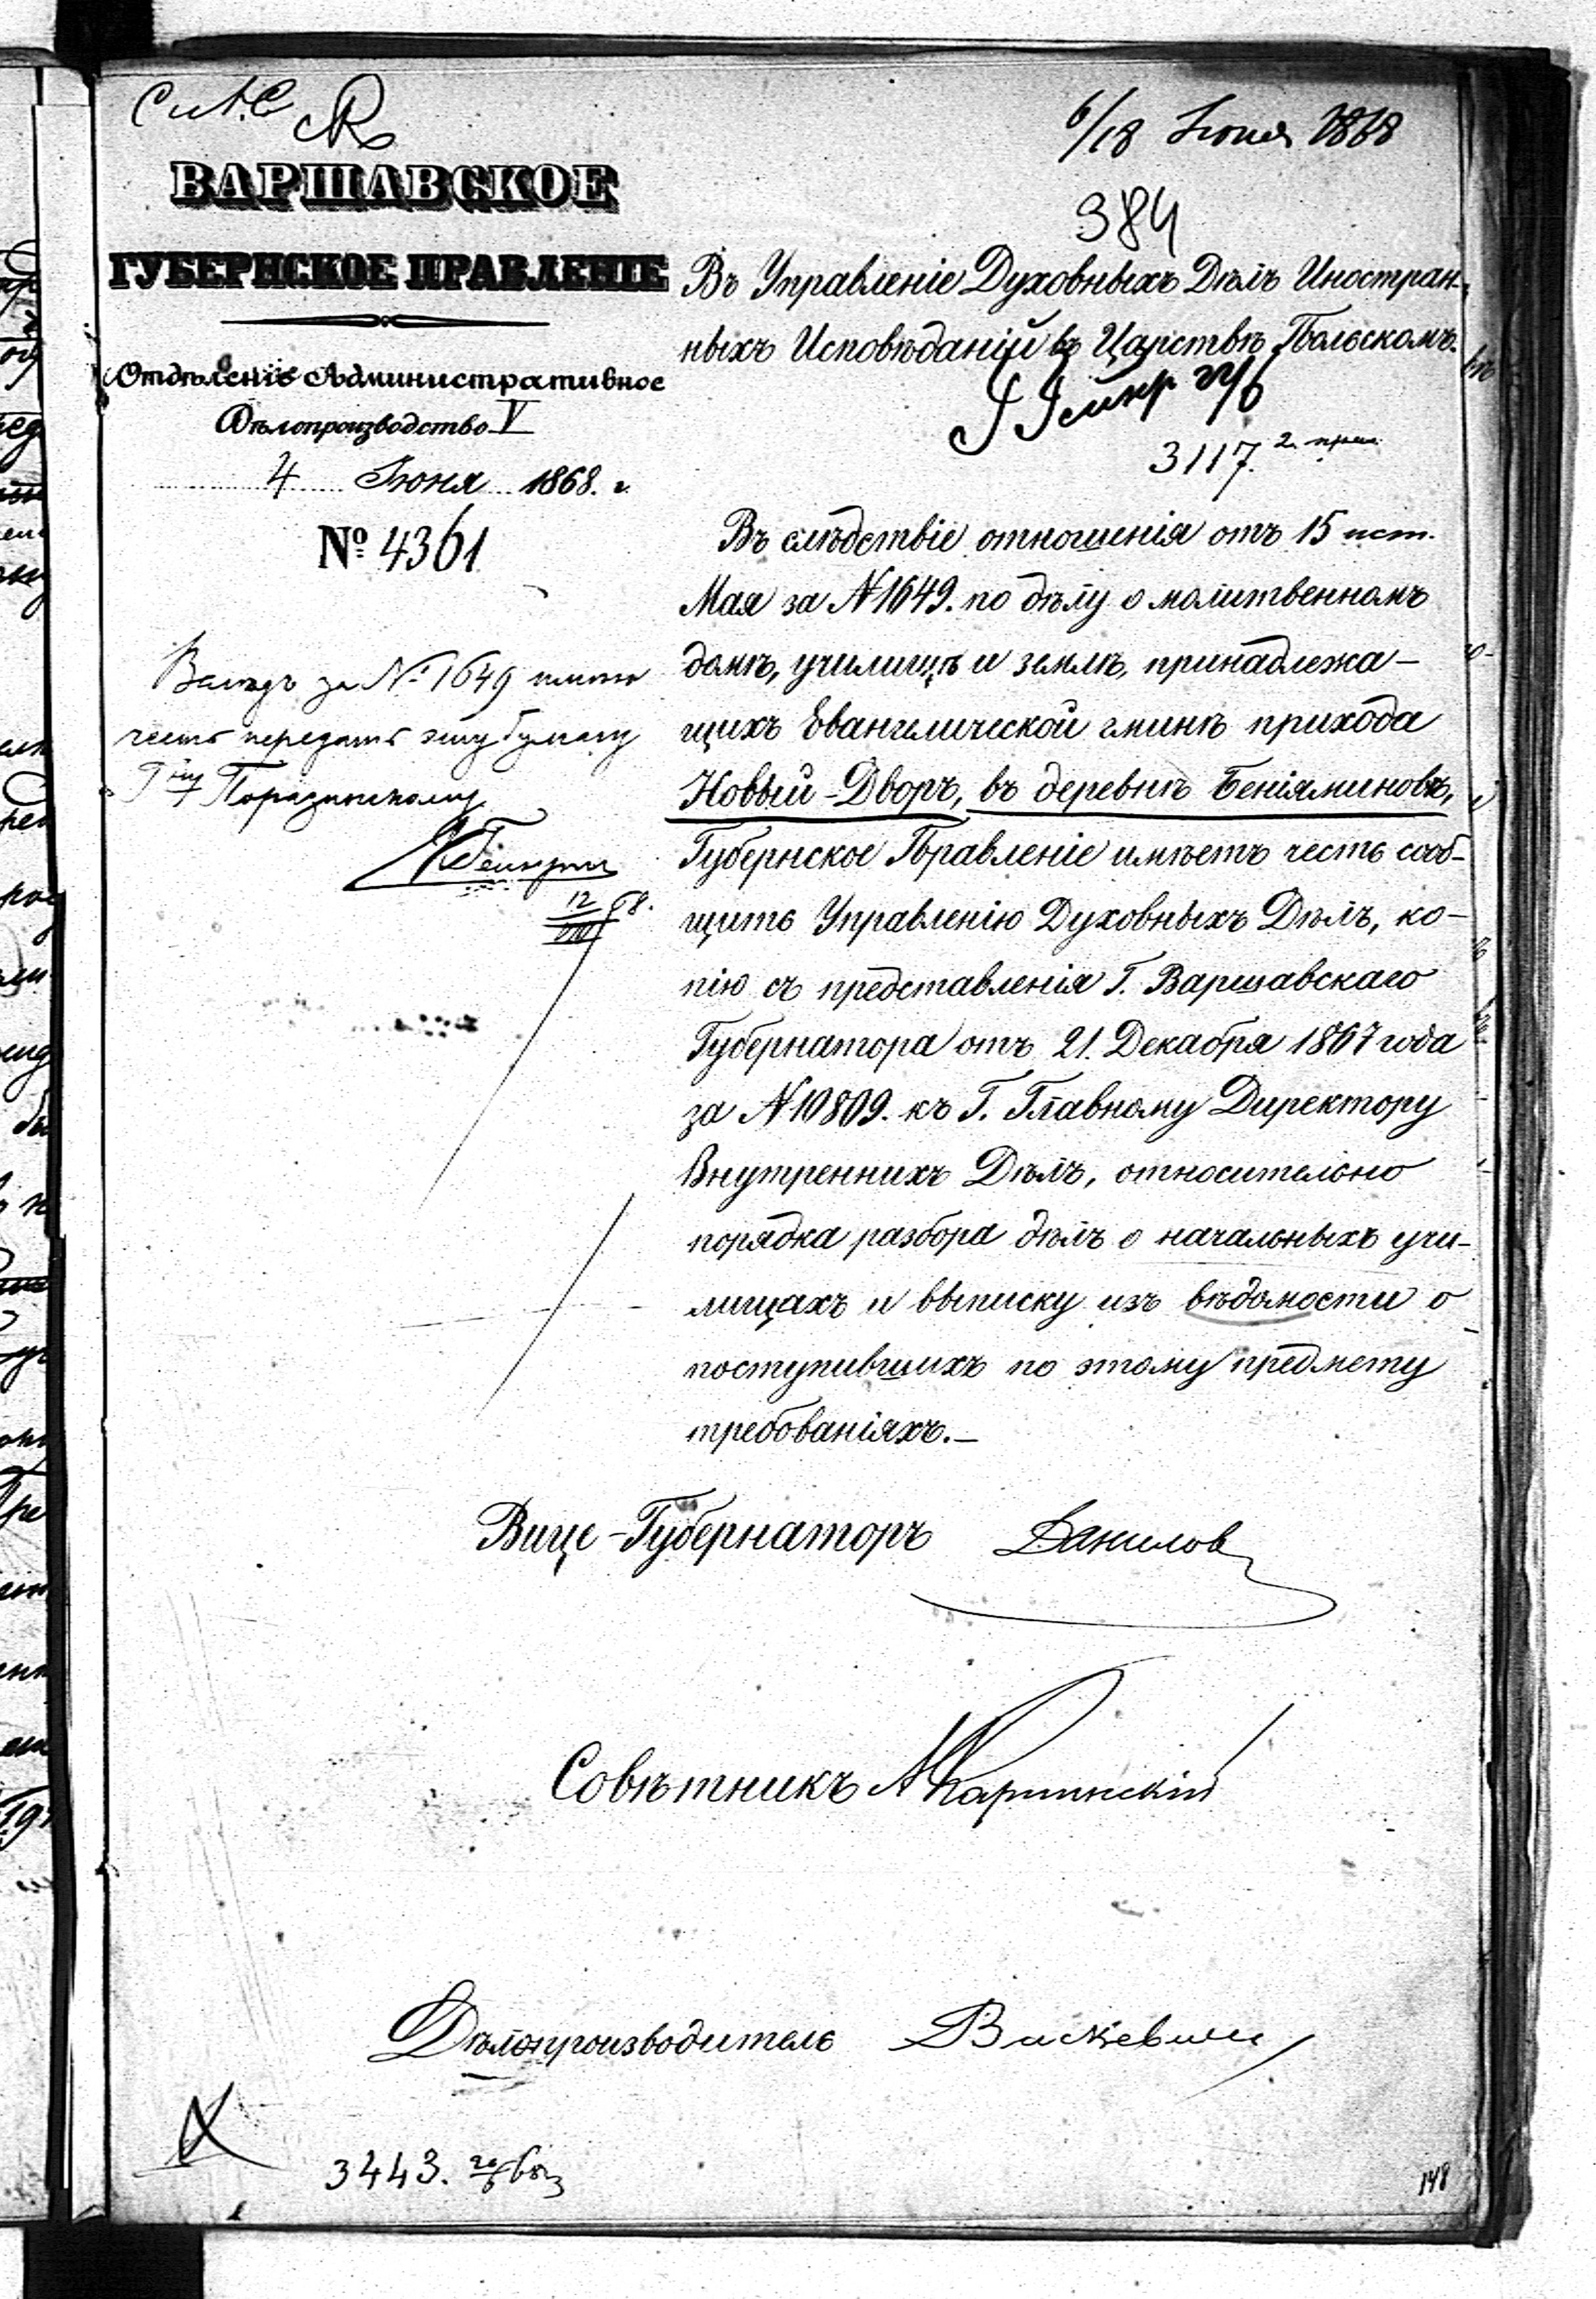 6/18 Іюня 1868
384
ВАРШАВСКОЕ
ГУБЕРНСКОЕ ПРАВЛЕНІЕ
Отдѣленіе Административное
Дѣлопроизводство V
4 Іюня 1868. г.
№ 4361
Въ Управленіе Духовныхъ Дѣлъ Иностран-
ныхъ Исповѣданій въ Царствѣ Польскомъ.
3117. 2
за № 1649
честь передать эту бумагу
12 68.
Въ слѣдствіе отношенія отъ 15 ист.
Мая за № 1649. по дѣлу о молитвенномъ
домѣ, училищѣ и землѣ, принадлежа-
щихъ Евангелической гминѣ прихода
Новый-Дворъ, въ деревнѣ Беніяминовъ,
Губернское Правленіе имѣетъ честь сооб-
щить Управленію Духовныхъ Дѣлъ, ко-
пію съ представленія Г. Варшавскаго
Губернатора отъ 21. Декабря 1867 года
за № 10809. къ Г. Главному Директору
Внутреннихъ Дѣлъ, относительно
порядка разбора дѣлъ о начальныхъ учи-
лищахъ и выписку изъ вѣдомости о
поступившихъ по этому предмету
требованіяхъ.-
Вице-Губернаторъ Данилов
Совѣтникъ
Дѣлопроизводитель
3443.
148